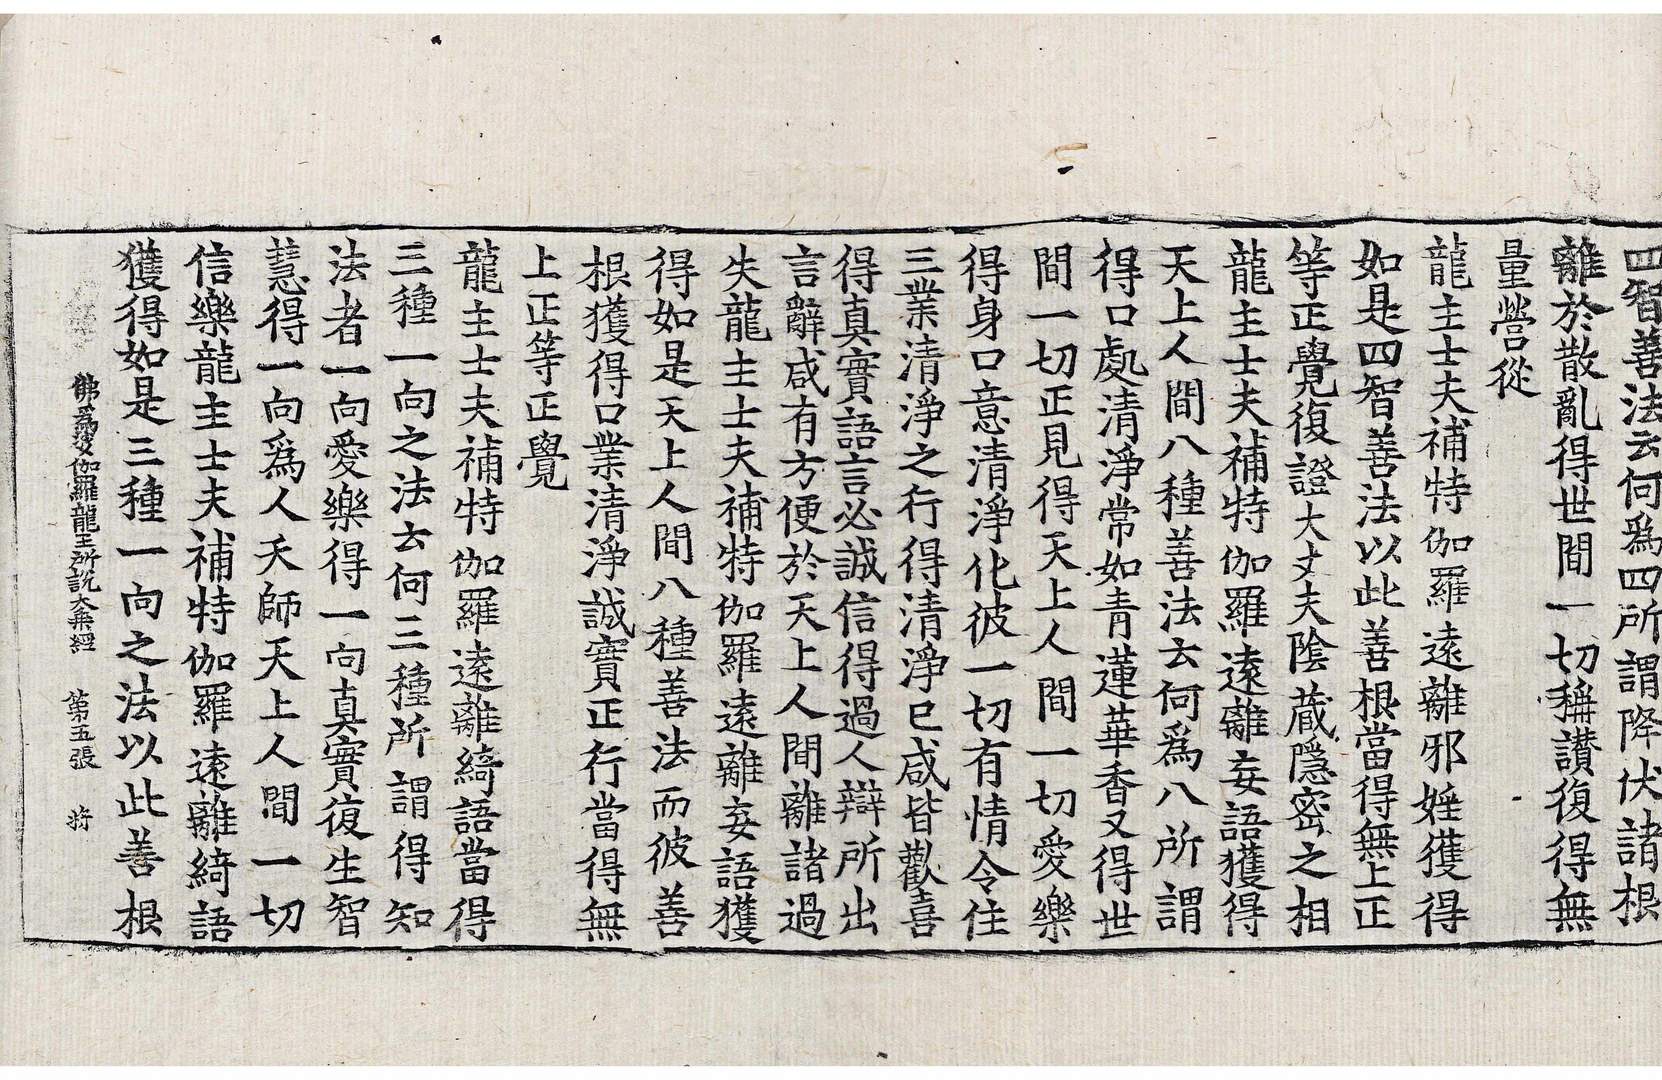 四智善法云何爲四所謂降伏諸根
離於散亂得世間一切稱讃復得無
量營從
龍主士夫補特伽羅遠離邪婬獲得
如是四智善法以此善根當得無上正
等正覺復證大丈夫陰蔵隱密之相
龍主士夫補特伽羅遠離妄語獲得
天上人間八種善法云何爲八所謂
得口處清淨常如青蓮華香又得世
間一切正見得天上人間一切愛樂
得身口意清淨化彼一切有情令住
三業清淨之行得清淨已咸皆歡喜
得真實語言必誠信得過人辯所出
言辭咸有方便於天上人間離諸過
失龍主士夫補特伽羅遠離妄語獲
得如是天上人間八種善法而彼善
根獲得口業清淨誠實正行當得無
上正等正覺
龍主士夫補特伽羅遠離綺語當得
三種一向之法云何三種所謂得知
法者一向愛樂得一向真實復生智
慧得一向爲人天師天上人間一切
信樂龍主士夫補特伽羅遠離綺語
獲得如是三種一向之法以此善根
佛爲娑伽羅龍王所說大乘經 第五張 将